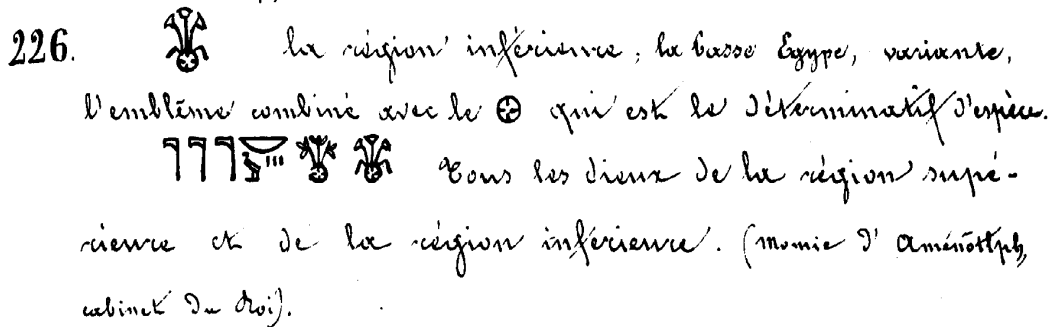 226. la région inférieure, la basse Egype, variante,
l'emblême combiné avec le 𓊖 qui est le déterminatif d'espèce.
𓊹𓊹𓊹 Tous les dieux de la région supé-
rieure et de la région inférieure. (momie d'Aménôthph,
cabinet du Roi).